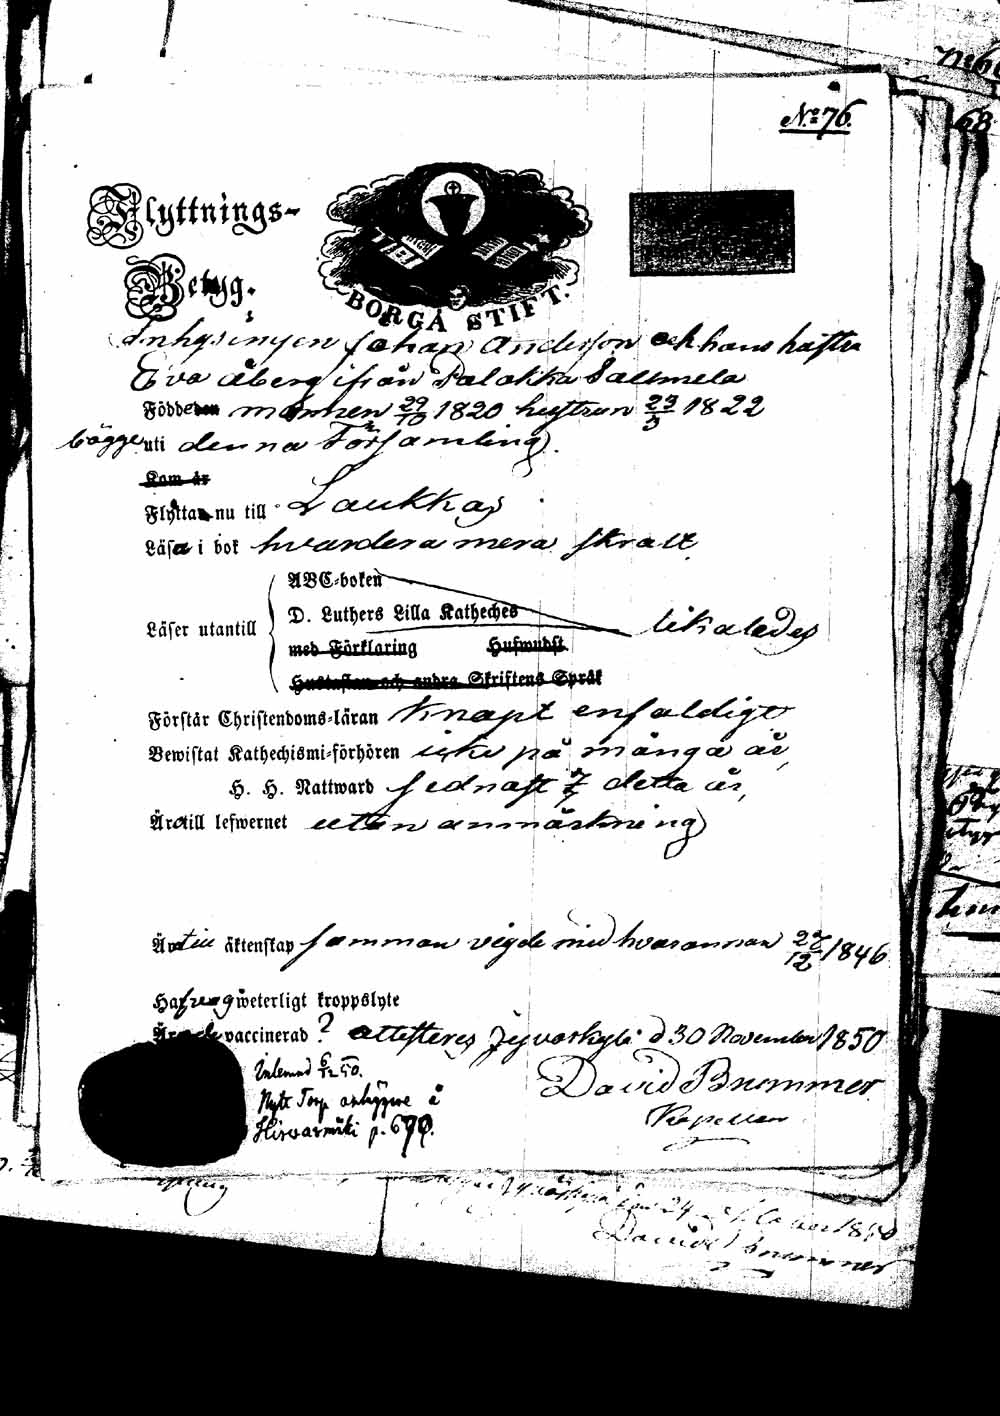 No 76.
Flyttnings-
Betyg.
BORGÅ STIFT.
Inhysingen Johan Anderson och hans hustru
Eva Åberg ifrån Palokka Salmela
Födde mannen 29/10 1820 hustrun 23/5 1822
bägge uti denna Församling.
Kom år
Flytta nu till Laukkas
Läsa i bok hvardera mera skralt
ABC-boken
D. Luthers Lilla Katheches
Läser utantill likaledes
med Förklaring Huswudst
Hustaflan och andra Skriftens Språk
Förstår Christendoms-läran knapt enfaldigt
Bewistat Kathechismi-förhören icke på många år,
H. H. Nattward sednast 7/7 detta år,
Äro till lefwernet utan anmärkning
Äro till äktenskap samman vigde med hvarannan 27/12 1846
Hafva weterligt kroppslyte
Äro vaccinerad? attesteras Jyvaskylä d 30 November 1850
David Brummer
Kapellan
Inlemnad 6/12 50.
Nytt Torp anläggare å
Hirvasmäki p. 679.
1850
David Brummer
68